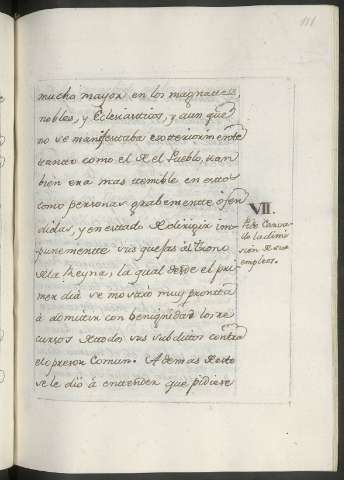 111
mucho mayor en los magnattes,
nobles, y Eclesiasticos, y aun que
no se manifestaba exteriormente
tanto como el del Pueblo, tan
bien era mas temible en estos
como personas grabemente ofen
didas, y en estado de dirigir im
punemente sus quejas al trono
de la Reyna, la qual desde el pri
mer dia se mostró muy pronta
á admitir con benignidad los re
cursos de todos sus subditos contra
el opresor comun. Ademas de esto
se le dió á entender que pidiese
VII.
Pide
la dimi
sión de sus
empleos.